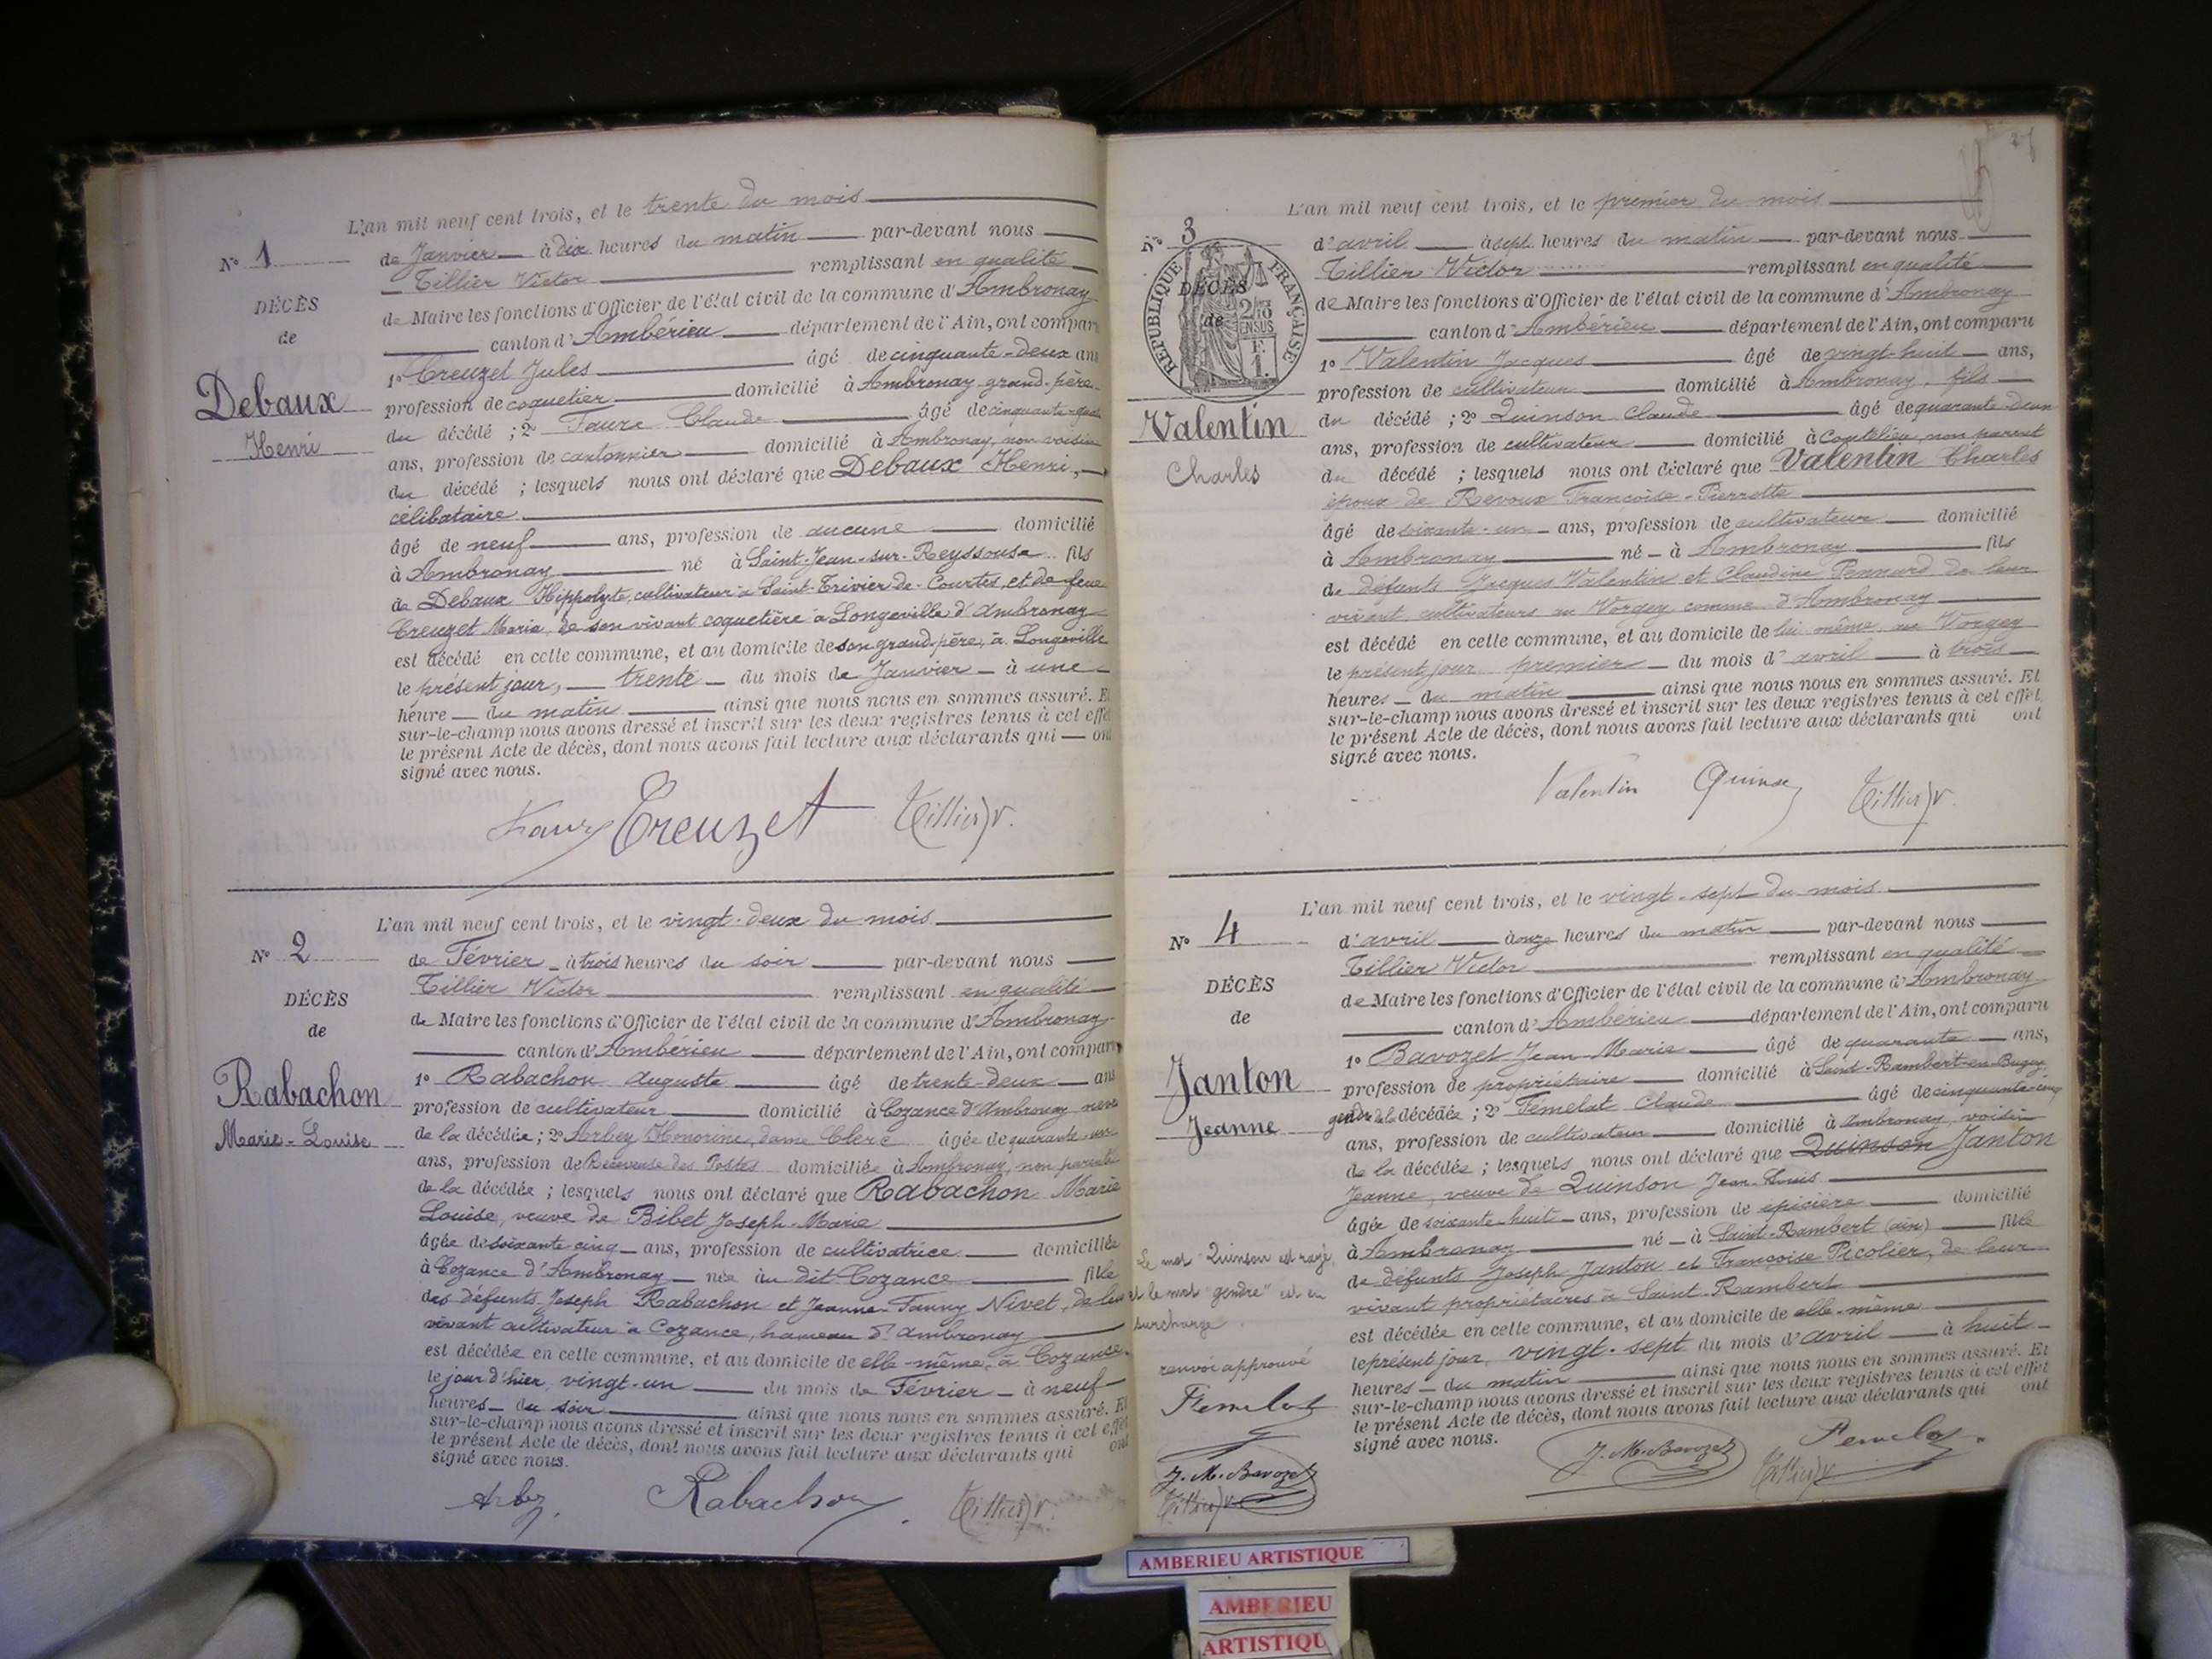 L'an mil neuf cent trois, et le trente du mois
N° 1
de Janvier à dix heures du matin par-devant nous
Tillier Victor remplissant en qualité
DÉCÈS
de Maire les fonctions d'Officier de l'état civil de la commune d'Ambronay
de
canton d'Ambérieu département de l'Ain, ont comparu
1° Creuzet Jules âgé de cinquante-deux ans
Debaux
profession de coquetier domicilié à Ambronay grand-père
Henri
du décédé ; 2° Faure Claude âgé de cinquante
ans, profession de cantonnier domicilié à Ambronay, non voisin
du décédé ; lesquels nous ont déclaré que Debaux Henri,
célibataire
âgé de neuf ans, profession de aucune domicilié
à Ambronay né à Saint-Jean-sur-Reyssouse fils
de Debaux Hippolyte, cultivateur à Saint-Trivier-de-Courtes, et de feue
Creuzet Marie, de son vivant coquetière à Longeville d'Ambronay
est décédé en cette commune, et au domicile de son grand-père, à Longeville
le présent jour, trente du mois de Janvier à une
heure du matin ainsi que nous nous en sommes assuré. Et
sur-le-champ nous avons dressé et inscrit sur les deux registres tenus à cet effet
le présent Acte de décès, dont nous avons fait lecture aux déclarants qui ont
signé avec nous.
Faure Creuzet Tillier V.
L'an mil neuf cent trois, et le vingt-deux du mois
N° 2
de Février à trois heures du soir par-devant nous
Tillier Victor remplissant en qualité
DÉCÈS
de Maire les fonctions d'Officier de l'état civil de la commune d'Ambronay
de
canton d'Ambérieu département de l'Ain, ont comparu
1° Rabachon Auguste âgé de trente-deux ans
Rabachon
profession de cultivateur domicilié à Cozance d'Ambronay neveu
Marie-Louise
de la décédée ; 2° Arbey Honorine, dame Clerc âgée de quarante-un
ans, profession de Receveuse des Postes domiciliée à Ambronay, non parente
de la décédée ; lesquels nous ont déclaré que Rabachon Marie
Louise, veuve de Bibet Joseph-Marie
âgée de soixante-cinq ans, profession de cultivatrice domiciliée
à Cozance d'Ambronay née au dit Cozance fille
des défunts Joseph Rabachon et Jeanne-Fanny Nivet, de leur
vivant cultivateur à Cozance, hameau d'Ambronay
est décédée en cette commune, et au domicile de elle-même, à Cozance
le jour d'hier, vingt-un du mois de Février à neuf
heures du soir ainsi que nous nous en sommes assuré. Et
sur-le-champ nous avons dressé et inscrit sur les deux registres tenus à cet effet
le présent Acte de décès, dont nous avons fait lecture aux déclarants qui ont
signé avec nous.
Arbey. Rabachon. Tillier V.
L'an mil neuf cent trois, et le premier du mois
N° 3
d'avril à sept heures du matin par-devant nous
RÉPUBLIQUE FRANÇAISE
Tillier Victor remplissant en qualité
DÉCÈS
de Maire les fonctions d'Officier de l'état civil de la commune d'Ambronay
de
canton d'Ambérieu département de l'Ain, ont comparu
1° Valentin Jacques âgé de vingt-huit ans,
profession de cultivateur domicilié à Ambronay, fils
Valentin
du décédé ; 2° Quinson Claude âgé de quarante-deux
Charles
ans, profession de cultivateur domicilié à Coutelieu non parent
du décédé ; lesquels nous ont déclaré que Valentin Charles
époux de Revoux Françoise-Pierrette
âgé de soixante-un ans, profession de cultivateur domicilié
à Ambronay né à Ambronay fils
de défunts Jacques Valentin et Claudine Pennard de leur
vivant cultivateurs au Vorgey commune d'Ambronay
est décédé en cette commune, et au domicile de lui même, au Vorgey
le présent jour premier du mois d'avril à trois
heures du matin ainsi que nous nous en sommes assuré. Et
sur-le-champ nous avons dressé et inscrit sur les deux registres tenus à cet effet
le présent Acte de décès, dont nous avons fait lecture aux déclarants qui ont
signé avec nous.
Valentin Quinson Tillier V.
L'an mil neuf cent trois, et le vingt-sept du mois
N° 4
d'avril à onze heures du matin par-devant nous
Tillier Victor remplissant en qualité
DÉCÈS
de Maire les fonctions d'Officier de l'état civil de la commune d'Ambronay
de
canton d'Ambérieu département de l'Ain, ont comparu
1° Bavozet Jean-Marie âgé de quarante ans,
Janton
profession de propriétaire domicilié à Saint-Rambert-en-Bugey
Jeanne
gendre de la décédée ; 2° Femelat Claude âgé de cinquante-cinq
ans, profession de cultivateur domicilié à Ambronay, voisin
de la décédée ; lesquels nous ont déclaré que Quinson Janton
Jeanne, veuve de Quinson Jean-Louis
âgée de soixante-huit ans, profession de épicière domicilié
à Ambronay né à Saint-Rambert (ain) fille
de défunts Joseph Janton et Françoise Picolier, de leur
vivant propriétaires à Saint-Rambert
est décédée en cette commune, et au domicile de elle-même
le présent jour, vingt-sept du mois d'avril à huit
heures du matin ainsi que nous nous en sommes assuré. Et
sur-le-champ nous avons dressé et inscrit sur les deux registres tenus à cet effet
le présent Acte de décès, dont nous avons fait lecture aux déclarants qui ont
signé avec nous.
J. M. Bavozet Femelat Tillier V.
Le mot Quinson est rayé
et le mot "gendre" est en
surcharge.
renvoi approuvé
Femelat
J. M. Bavozet
Tillier V.
AMBERIEU ARTISTIQUE
AMBERIEU
ARTISTIQU